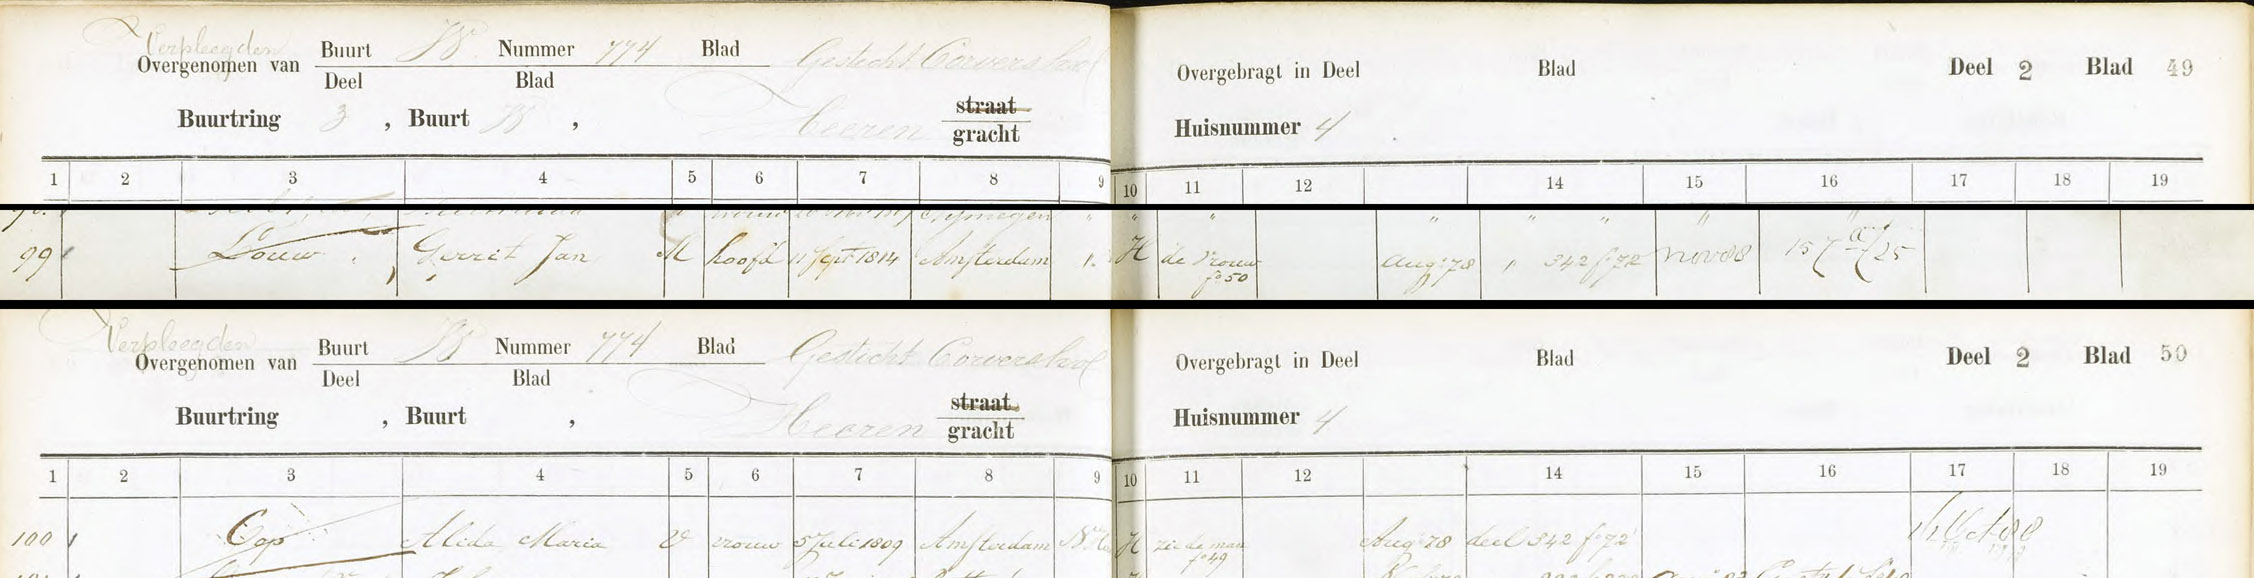 Verpleegden
Overgenomen van Buurt W Nummer 774 Blad Gesticht Corvershof
Deel Blad
Overgebragt in Deel Blad Deel 2 Blad 49
Buurtring 3, Buurt W, Heeren straat
gracht
Huisnummer 4
1 2 3 4 5 6 7 8 9 10 11 12 14 15 16 17 18 19
99 Louw Gerrit Jan M hoofd 11 Sept 1814 Amsterdam H de vrouw
f° 50
Aug: 78 342 f 72 nov 88
Verpleegden
Overgenomen van Buurt W Nummer 774 Blad Gesticht Corvershof
Deel Blad
Overgebragt in Deel Blad Deel 2 Blad 50
Buurtring , Buurt , Heeren straat
gracht
Huisnummer 4
1 2 3 4 5 6 7 8 9 10 11 12 14 15 16 17 18 19
100 1 Cop Alida Maria V vrouw 5 Juli 1809 Amsterdam N H H zie de man
f° 49
Aug: 78 deel 342 f° 72 Oct 88